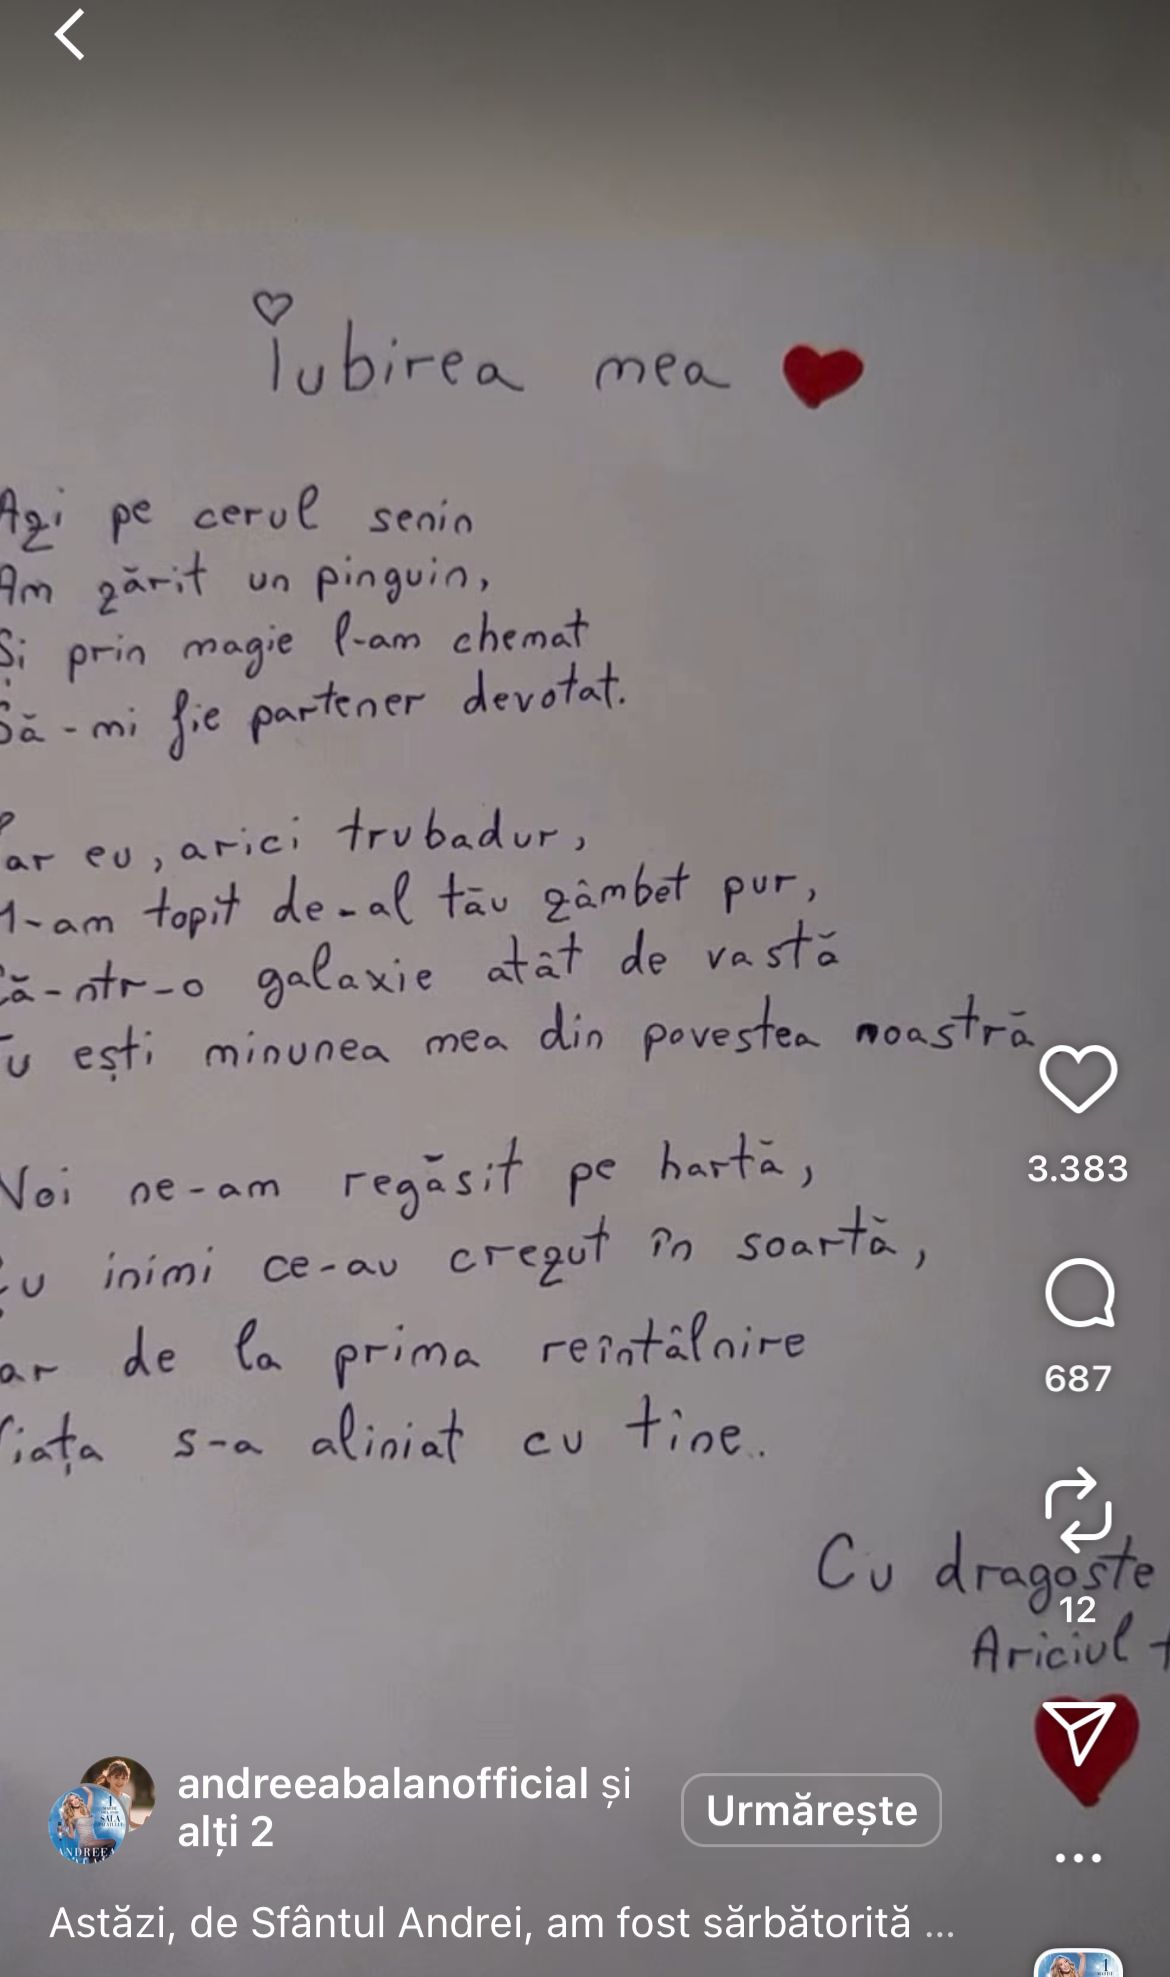 Iubirea mea
Azi pe cerul senin
Am zărit un pinguin,
Și prin magie l-am chemat
Să-mi fie partener devotat.
ar eu, arici trubadur,
M-am topit de-al tău zâmbet pur,
Că-ntr-o galaxie atât de vastă
Tu ești minunea mea din povestea noastră
Noi ne-am regăsit pe hartă,
Cu inimi ce-au crezut în soartă,
ar de la prima reîntâlnire
Viața s-a aliniat cu tine..
Cu dragoste
Ariciul t
3.383
687
12
andreeabalanofficial și
alți 2
Urmărește
Astăzi, de Sfântul Andrei, am fost sărbătorită ...